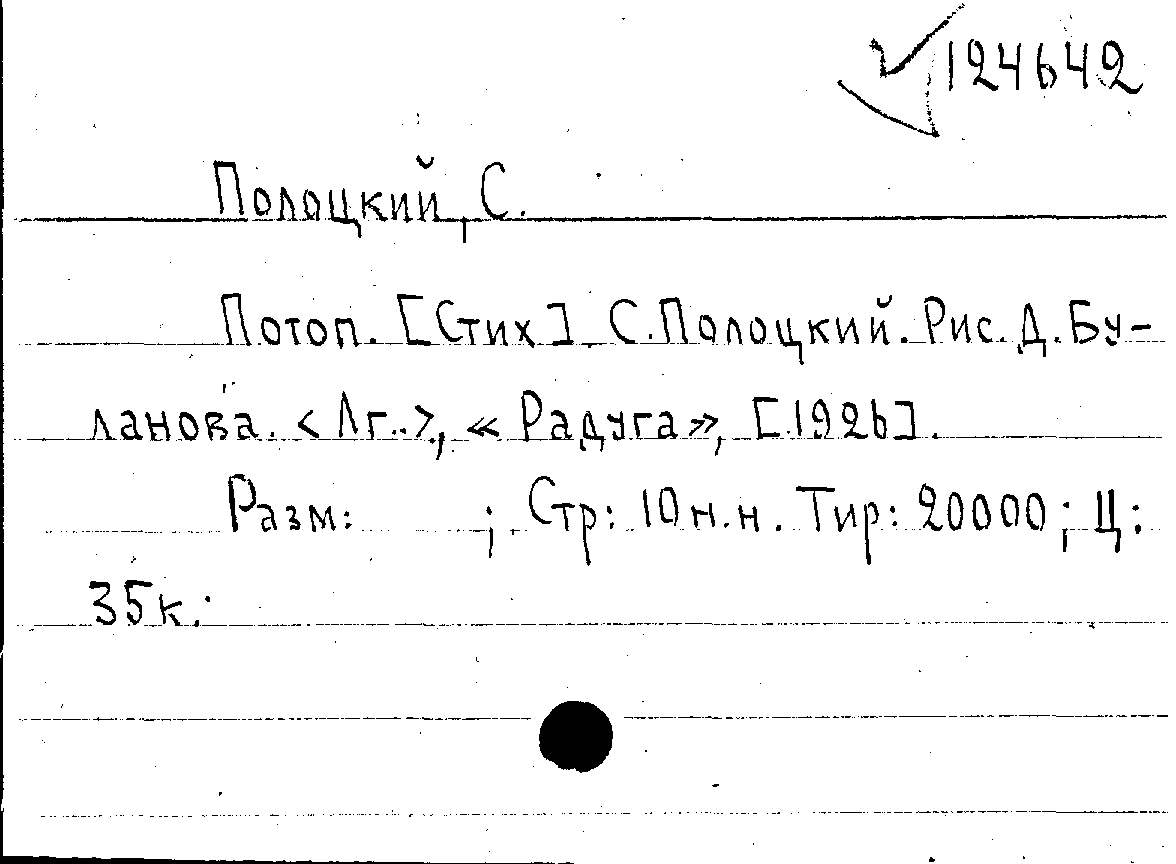 124642
Полоцкий, С.
Потоп. [Стих]. С. Полоцкий. Рис. Д. Бу-
ланова. <Лг..>, «Радуга», [1926].
Разм: ; Стр: 10 н.н. Тир: 20000; Ц:
35 к.